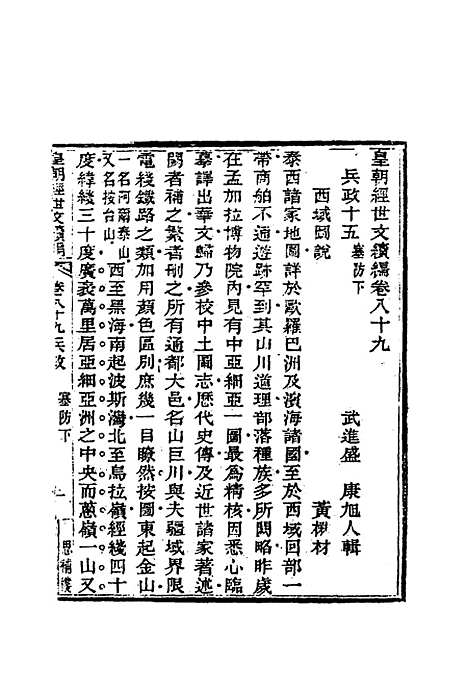 皇朝經世文續編卷八十九
兵政十五 塞防下
武進盛 康旭人輯
西域圖說
黃楙材
泰西諸家地圖詳於歐羅巴洲及濱海諸國至於西域回部一
帶商舶不通遊跡罕到其山川道理部落種族多所闕略昨歲
在孟加拉博物院內見有中亞細亞一圖最爲精核因悉心臨
摹譯出華文歸乃參校中土圖志歷代史傳及近世諸家著述
闕者補之繁者刪之所有通都大邑名山巨川與夫疆域界限
電綫鐵路之類加用顏色區別庶幾一目瞭然按圖東起金山
一名阿爾泰山
又名按台山
西至黑海南起波斯灣北至烏拉嶺經綫四十
度緯綫三十度廣袤萬里居亞細亞洲之中央而蔥嶺一山又
皇朝經世文續編
卷八十九兵政
塞防下
一
思補樓